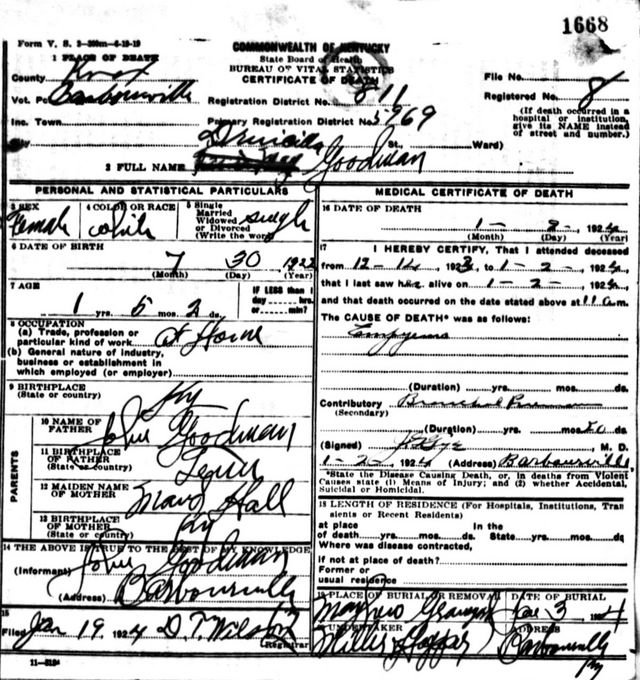 1668
Form V. S. 2-200m-6-19-19
COMMONWEALTH OF KENTUCKY
State Board of Health
BUREAU OF VITAL STATISTICS
CERTIFICATE OF DEATH
1 PLACE OF DEATH
County Knox
Vot. Pct. Barbourville
Inc. Town
City
File No.
Registered No. 8
Registration District No. 811
Primary Registration District No. 5969
(If death occurred in a hospital or institution, give its NAME instead of street and number.)
St., Ward)
Druicilla
2 FULL NAME Goodman
PERSONAL AND STATISTICAL PARTICULARS
3 SEX
Female
4 COLOR OR RACE
white
5 Single
Married
Widowed
or Divorced
(Write the word)
single
6 DATE OF BIRTH
7 30 1922
(Month) (Day) (Year)
7 AGE
1 yrs. 5 mos. 2 ds.
IF LESS than 1
day hrs.
or min.?
8 OCCUPATION
(a) Trade, profession or
particular kind of work at Home
(b) General nature of industry,
business or establishment in
which employed (or employer)
9 BIRTHPLACE
(State or country) Ky
PARENTS
10 NAME OF
FATHER John Goodman
11 BIRTHPLACE
OF FATHER
(State or country) Tenn
12 MAIDEN NAME
OF MOTHER Hall
13 BIRTHPLACE
OF MOTHER
(State or country) Ky
14 THE ABOVE IS TRUE TO THE BEST OF MY KNOWLEDGE
(Informant) John Goodman
(Address) Barbourville
15
Filed Jan 19 1924 D. T. Wilson
Registrar
11-3184
MEDICAL CERTIFICATE OF DEATH
16 DATE OF DEATH
1 - 2 - 1924
(Month) (Day) (Year)
17 I HEREBY CERTIFY, That I attended deceased
from 12-14 1923, to 1-2-, 1924,
that I last saw her alive on 1-2-, 1924,
and that death occurred on the date stated above at 11 a.m.
The CAUSE OF DEATH* was as follows:
Empyema
(Duration) yrs. mos. ds.
Contributory Bronchial
(Secondary)
(Duration) yrs. mos. ds.
(Signed) M. D.
1-2-, 1924 (Address) Barbourville
*State the Disease Causing Death, or, in deaths from Violent
Causes state (1) Means of Injury; and (2) whether Accidental,
Suicidal or Homicidal.
18 LENGTH OF RESIDENCE (For Hospitals, Institutions, Tran
sients or Recent Residents)
at place In the
of death yrs. mos. ds. State yrs. mos. ds.
Where was disease contracted,
if not at place of death?
Former or
usual residence
19 PLACE OF BURIAL OR REMOVAL
DATE OF BURIAL
Jan 3 1924
20 UNDERTAKER
ADDRESS
Barbourville
Ky